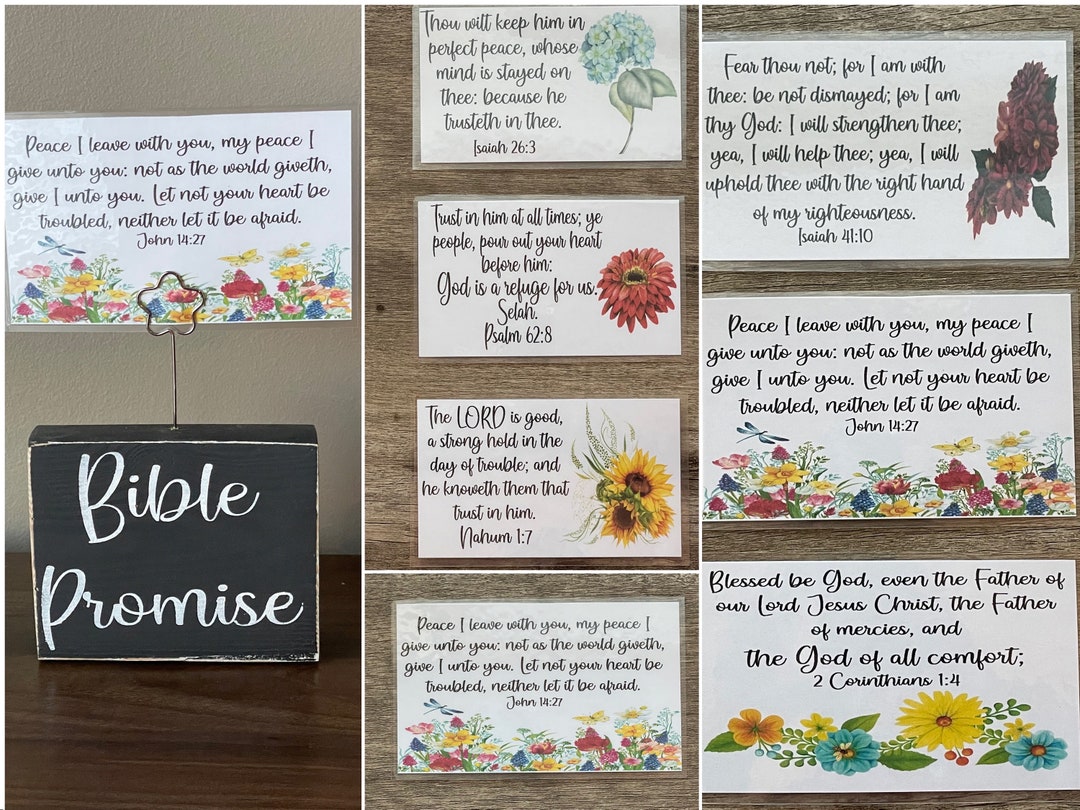 Peace I leave with you, my peace I
give unto you: not as the world giveth,
give I unto you. Let not your heart be
troubled, neither let it be afraid.
John 14:27
Bible
Promise
Thou wilt keep him in
perfect peace, whose
mind is stayed on
thee: because he
trusteth in thee.
Isaiah 26:3
Trust in him at all times; ye
people, pour out your heart
before him:
God is a refuge for us.
Selah.
Psalm 62:8
The LORD is good,
a strong hold in the
day of trouble; and
he knoweth them that
trust in him.
Nahum 1:7
Peace I leave with you, my peace I
give unto you: not as the world giveth,
give I unto you. Let not your heart be
troubled, neither let it be afraid.
John 14:27
Fear thou not; for I am with
thee: be not dismayed; for I am
thy God: I will strengthen thee;
yea, I will help thee; yea, I will
uphold thee with the right hand
of my righteousness.
Isaiah 41:10
Peace I leave with you, my peace I
give unto you: not as the world giveth,
give I unto you. Let not your heart be
troubled, neither let it be afraid.
John 14:27
Blessed be God, even the Father of
our Lord Jesus Christ, the Father
of mercies, and
the God of all comfort;
2 Corinthians 1:4